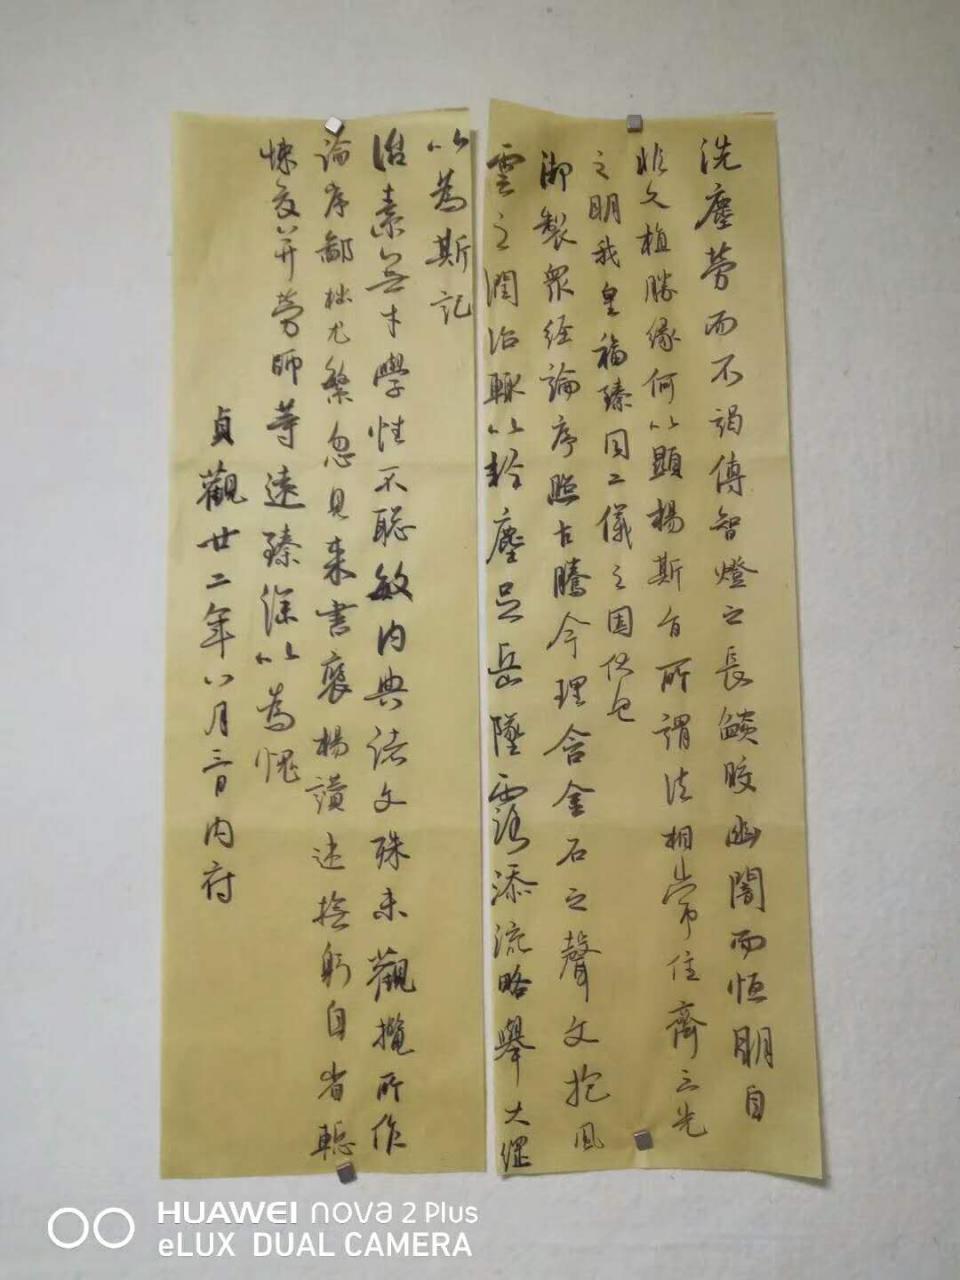 洗塵勞而不竭傳智燈之長燄皎幽闇而恒明自
非久植勝緣何以顯楊斯旨所謂法相常住齊三光
之明我皇福臻同二儀之固伏見
御製眾經論序照古騰今理含金石之聲文抱風
雲之潤治輒以輕塵足岳墜露添流略舉大綱
以為斯記
治素無才學性不聰敏內典諸文殊未觀攬所作
論序鄙拙尤繁忽見來書褒楊讚述撫躬自省慙
悚交并勞師等遠臻深以為愧
貞觀廿二年八月三日內府
HUAWEI nova 2 Plus
eLUX DUAL CAMERA